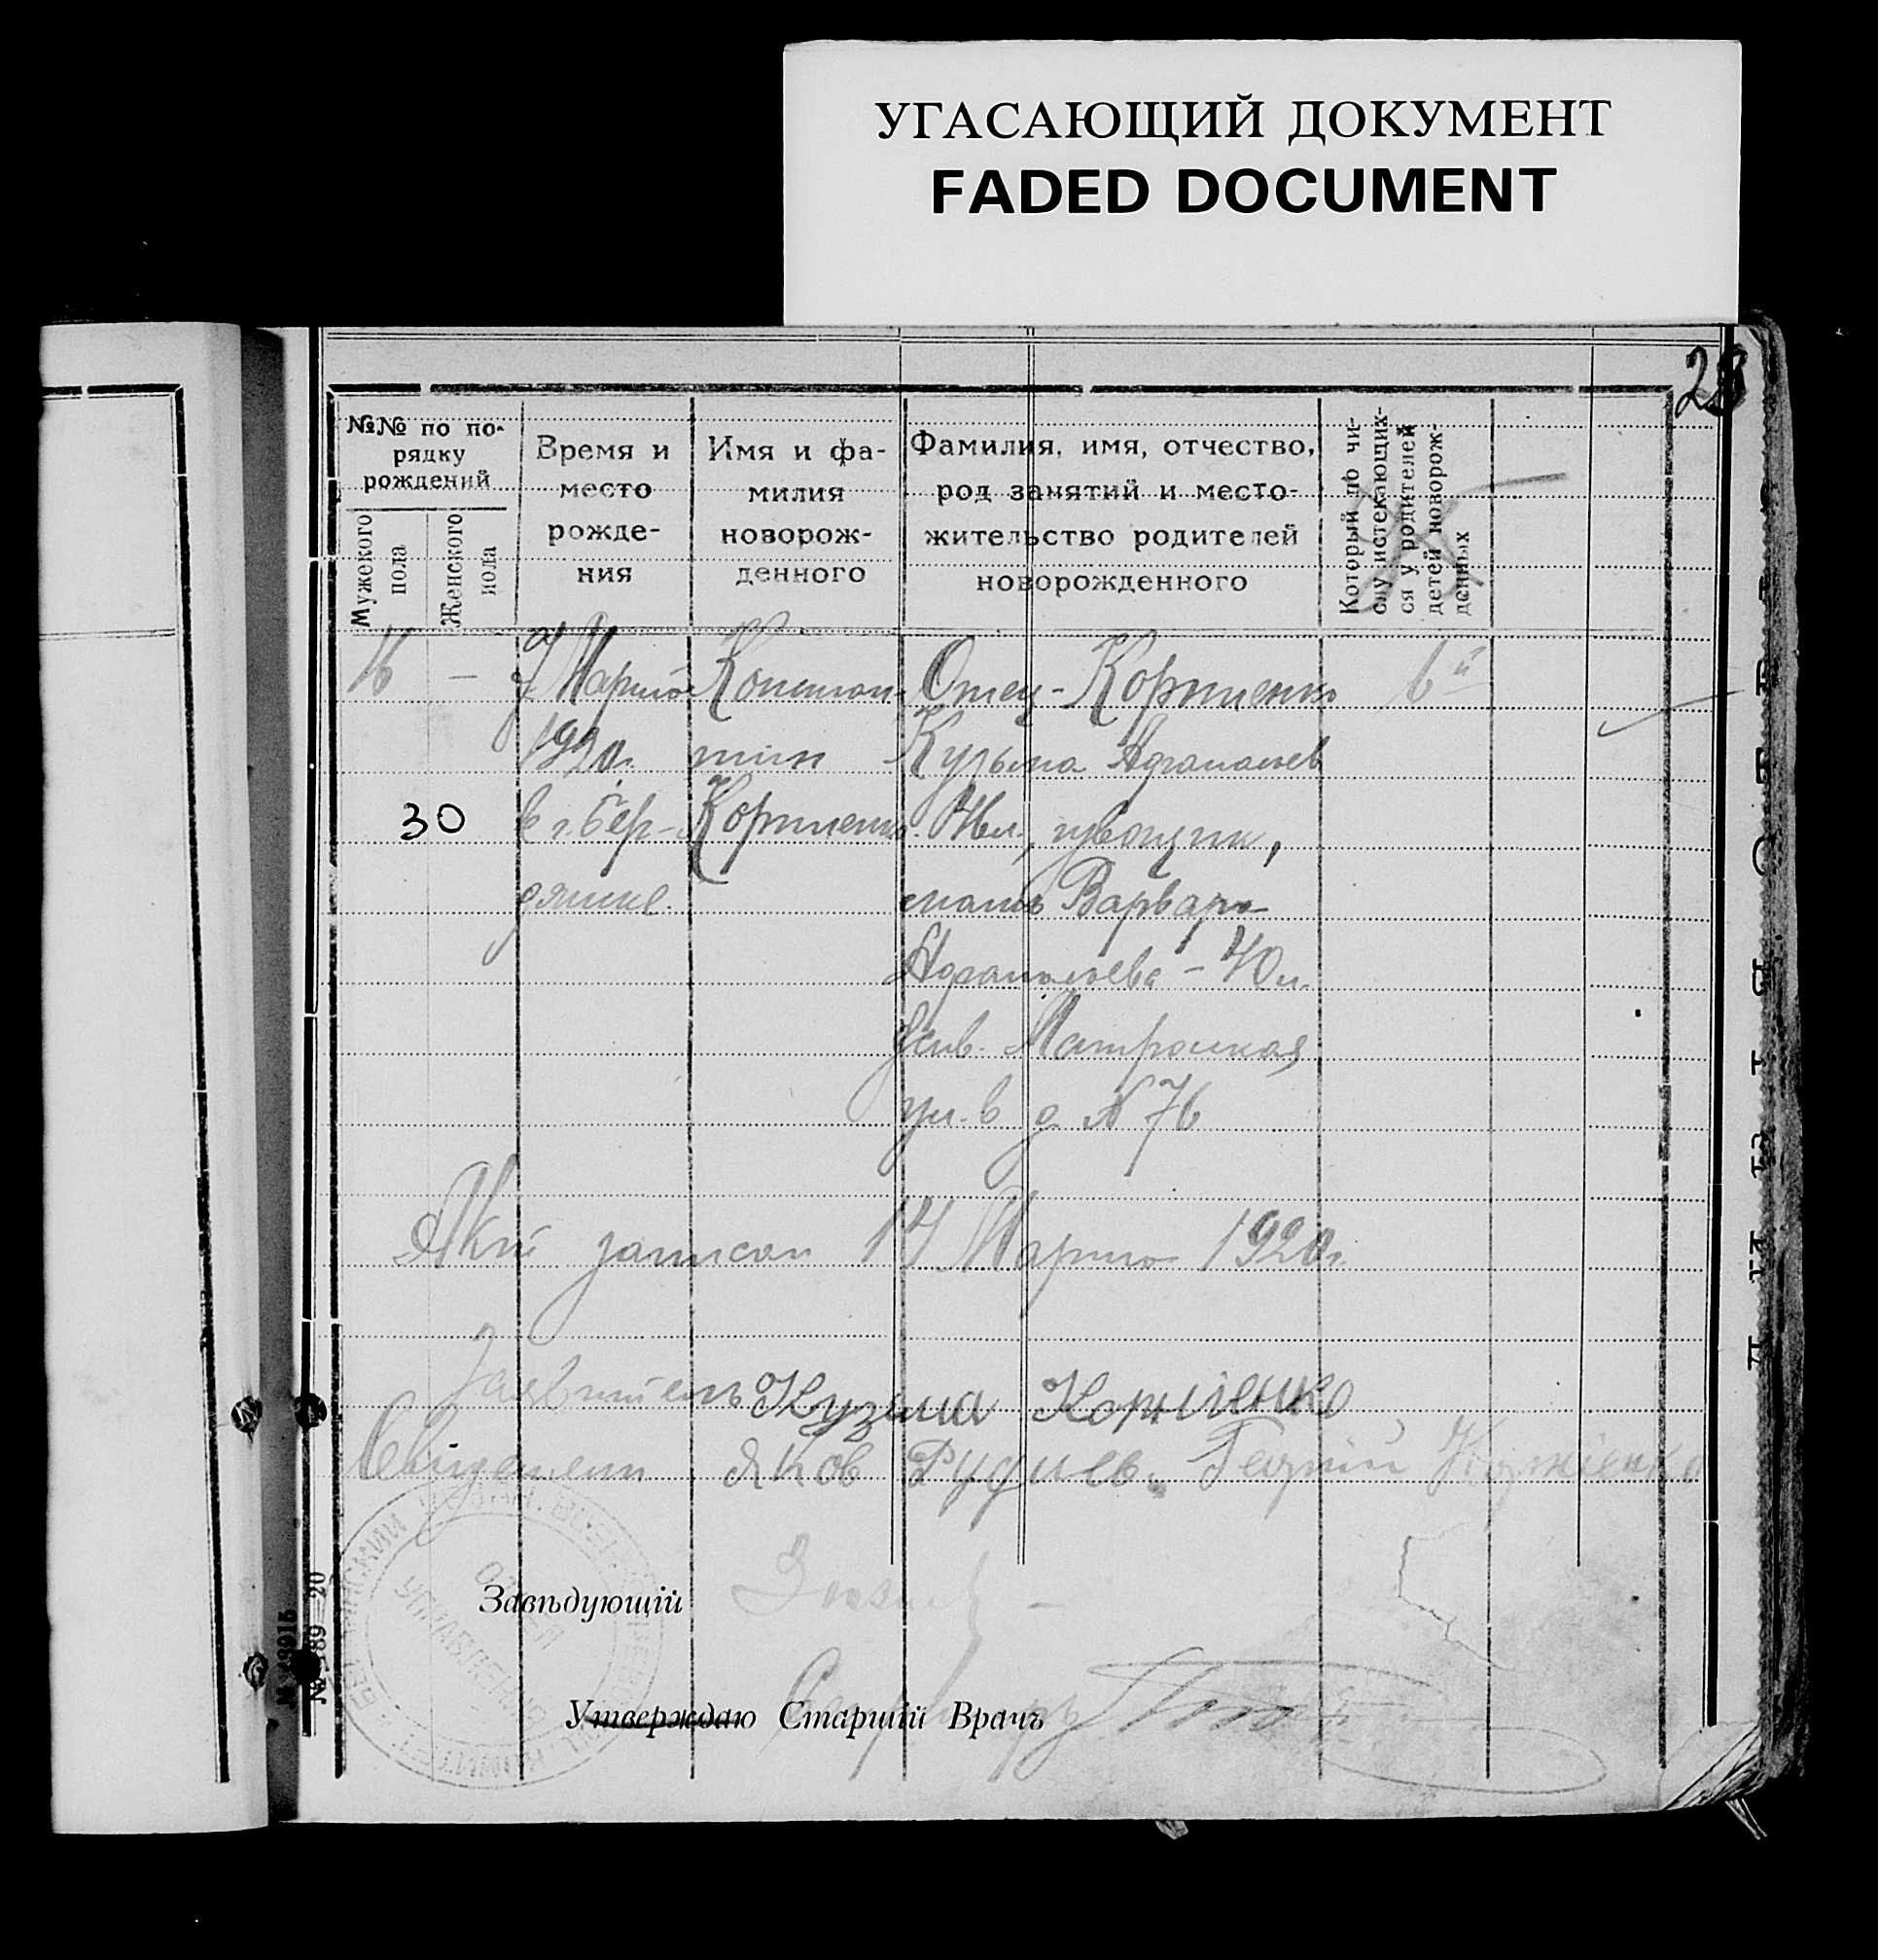 УГАСАЮЩИЙ ДОКУМЕНТ
FADED DOCUMENT
28
№№ по по-
рядку
рождений
Мужского
пола
Женского
пола
Время и
место
рожде-
ния
Имя и фа-
милия
новорож-
денного
Фамилия, имя, отчество,
род занятий и место-
жительство родителей
новорожденного
Который по чи-
слу истекающих-
ся у родителей
детей новорож-
денных
16 — 7 Марта Констан- Отец - Корниенко 6й
1920г. тин Кузьма
30 в г. Бер- Корниенко извощик,
дянске. мать Варвара
40 л.
Матросская
ул. в д. № 76
Акт записан 14 Марта 1920г.
Заявитель Кузма Корнiенко
Свидетели Яков Рудиев. Георгий Корнiенко
Завѣдующій
Утверждаю Старшій Врачъ